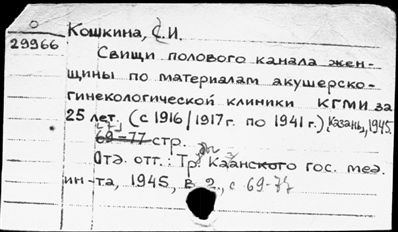 29966
Кошкина, С.И.
Свищи полового канала жен-
щины по материалам акушерско-
гинекологической клиники КГМИ за
25 лет. (с 1916/1917 г. по 1941 г.). Казань, 1945.
69-77 стр.
Отд. отт.: Тр. Казанского гос. мед.
ин-та, 1945, в. 2, с 69-77